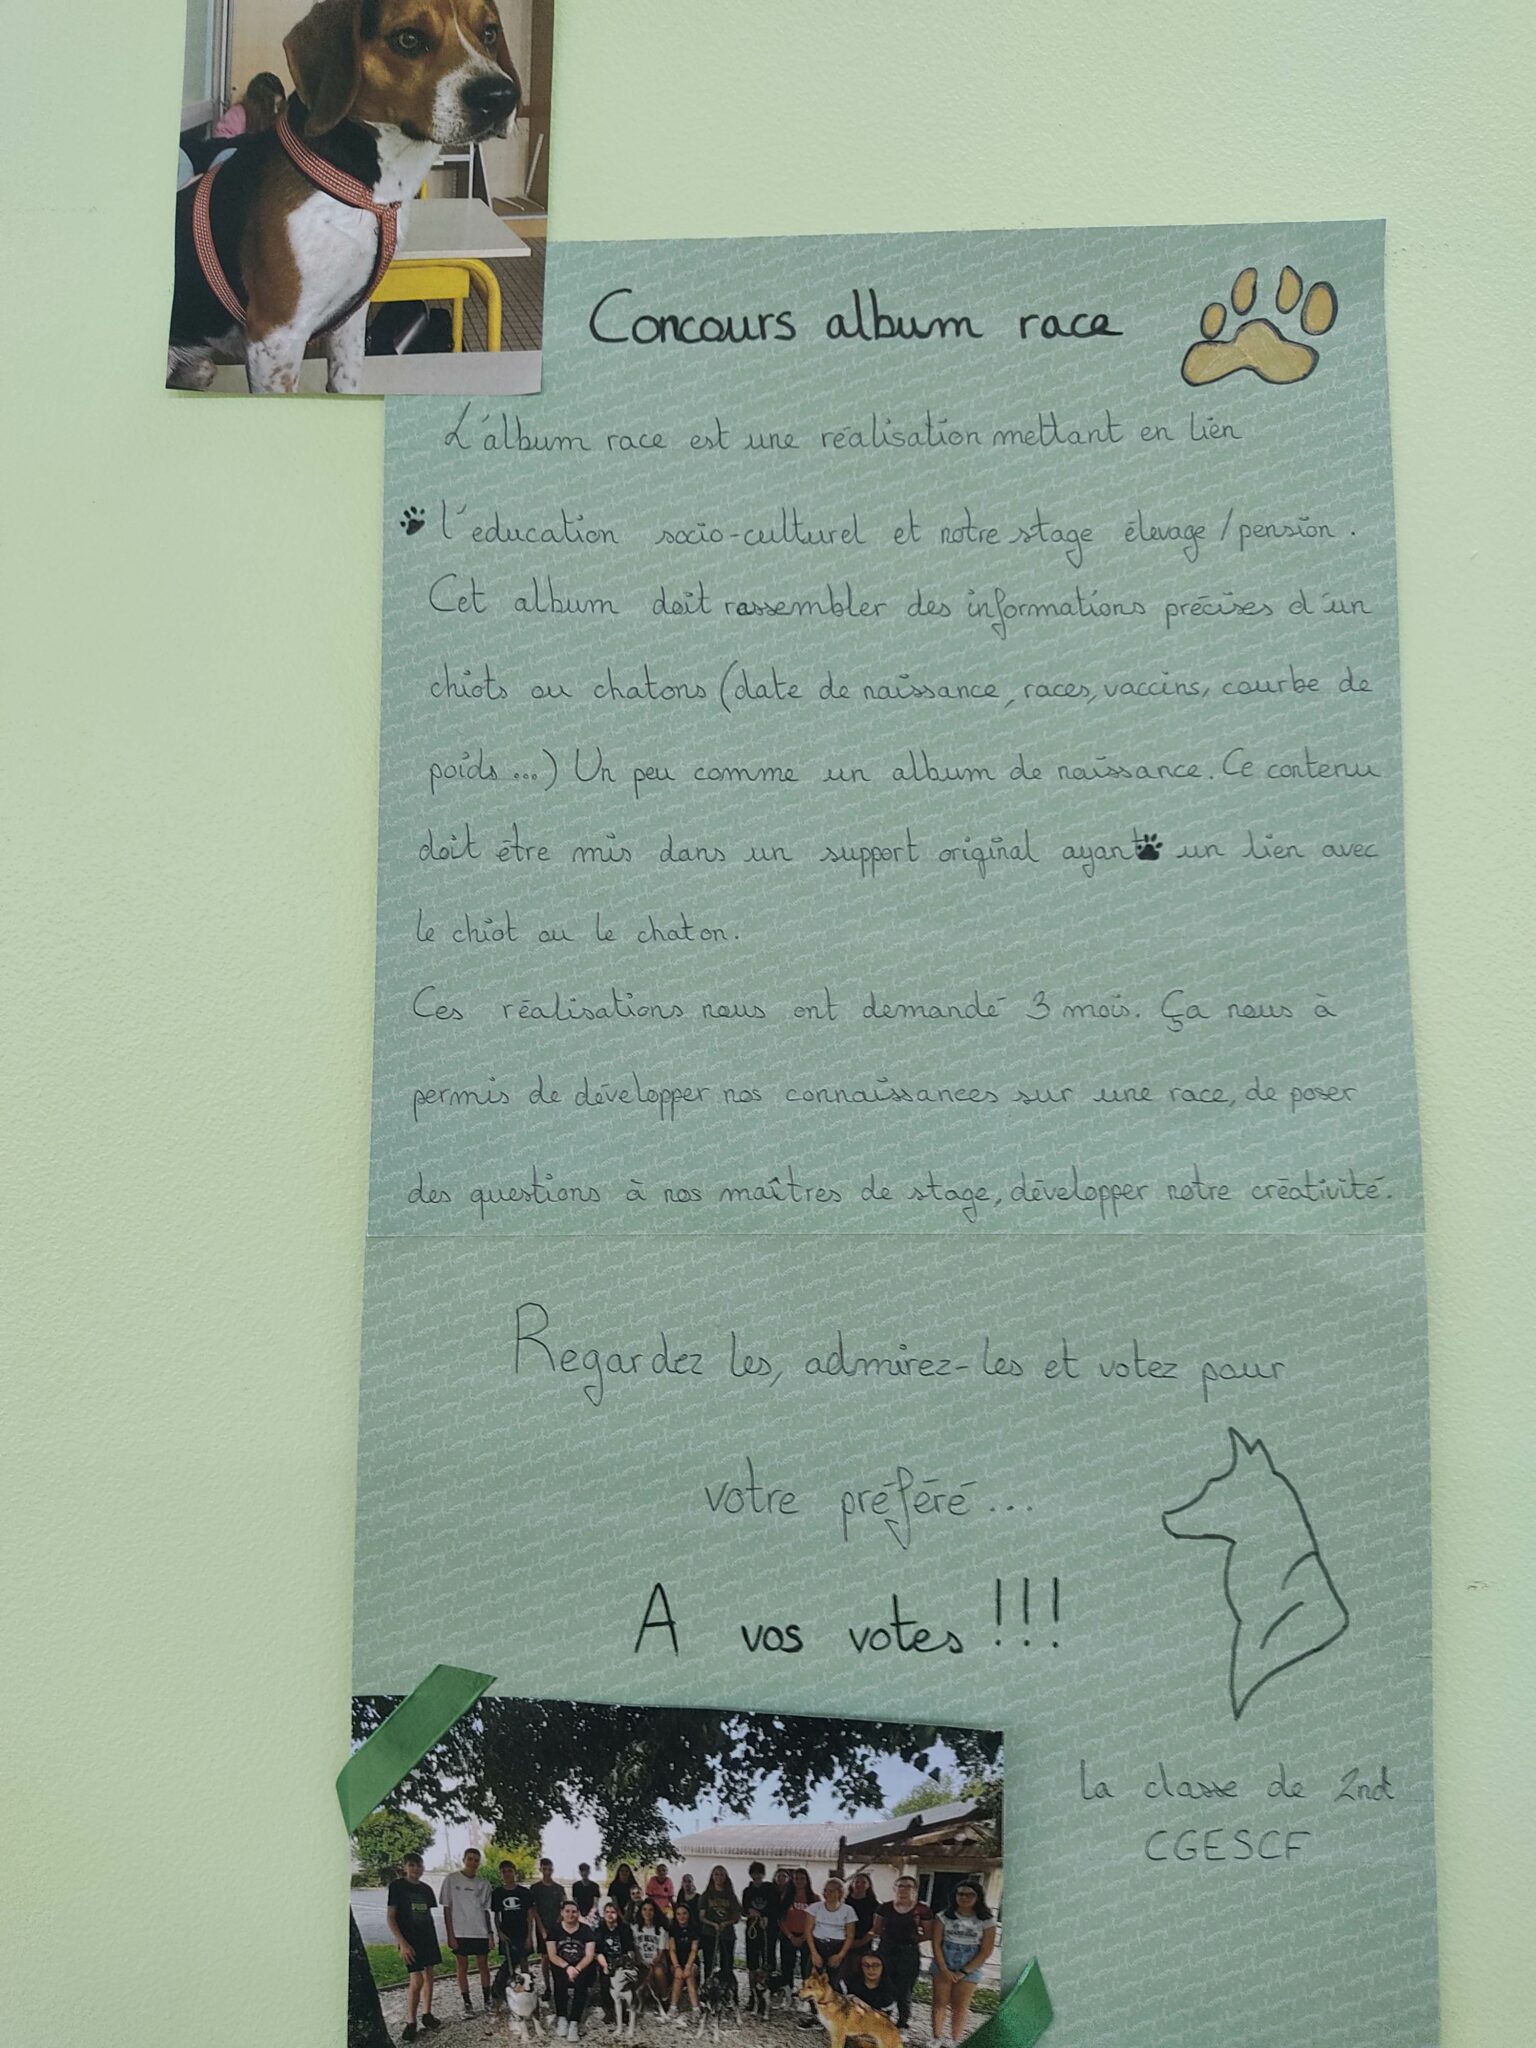 Concours album race
L'album race est une réalisation mettant en lien
l'education socio-culturel et notre stage élevage/pension.
Cet album doit rassembler des informations précises d'un
chiots ou chatons (date de naissance, races, vaccins, courbe de
poids...) Un peu comme un album de naissance. Ce contenu
doit être mis dans un support original ayant un lien avec
le chiot ou le chaton.
Ces réalisations nous ont demandé 3 mois. Ça nous à
permis de développer nos connaissances sur une race, de poser
des questions à nos maîtres de stage, développer notre créativité.
Regardez les, admirez-les et votez pour
votre préféré...
A vos votes !!!
la classe de 2nd
CGESCF